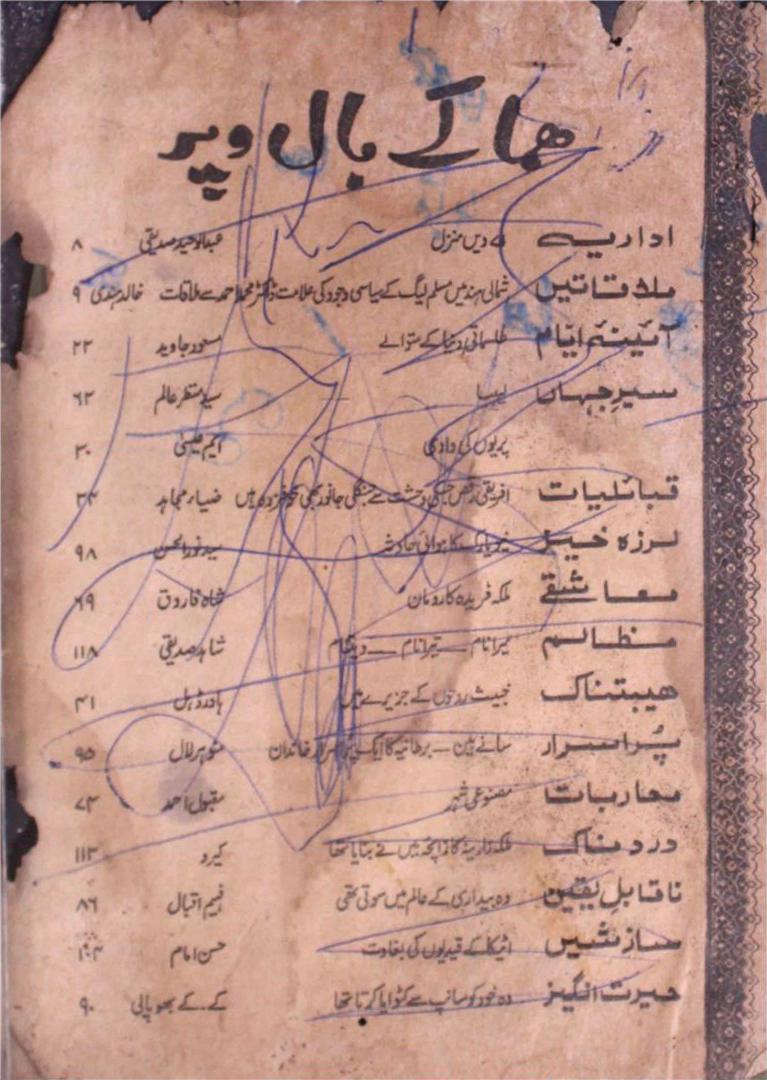 ھما کے بال و پر
اداریہ دیں منزل عبدالوحید صدیقی ۸
ملاقاتیں شمالی ہند میں مسلم لیگ کے سیاسی وجود کی علامت ڈاکٹر محمد احمد سے ملاقات خالد ہندی ۹
آئینۂ ایّام طلسماتی دنیا کے متوالے مسعود جاوید ۲۲
سیرِ جہاں لیبیا سید منظر عالم ۶۲
پریوں کی وادی ایم عیسیٰ ۳۰
قبائلیات افریقی رقص جنکی دہشت سے جنگلی جانور بھی خوفزدہ ہیں ضیاء مجاہد ۳۴
لرزہ خیز نیویارک کا ہوائی حادثہ سید نورالحسن ۹۸
معاشقے ملکہ فریدہ کا رومان شاہ فاروق ۶۹
مظالم میرا نام — تیرا نام — ویتنام شاہد صدیقی ۱۱۸
ھیبتناک خبیث روحوں کے جزیرے میں ہاورڈ ہل ۴۱
پُراسرار سانے بین — برطانیہ کا ایک پُراسرار خاندان منوہر لال ۹۵
محاربات مصنوعی شہر مقبول احمد ۷۴
دردناک ملکہ نازینہ کا زائچہ میں نے بنایا تھا کیرو ۱۱۳
ناقابلِ یقین وہ بیداری کے عالم میں سوتی تھی فہیم اقبال ۸۶
سازشیں اٹیکا کے قیدیوں کی بغاوت حسن امام
حیرت انگیز وہ خود کو سانپ سے کٹوایا کرتا تھا کے۔ کے بھوپالی ۹۰